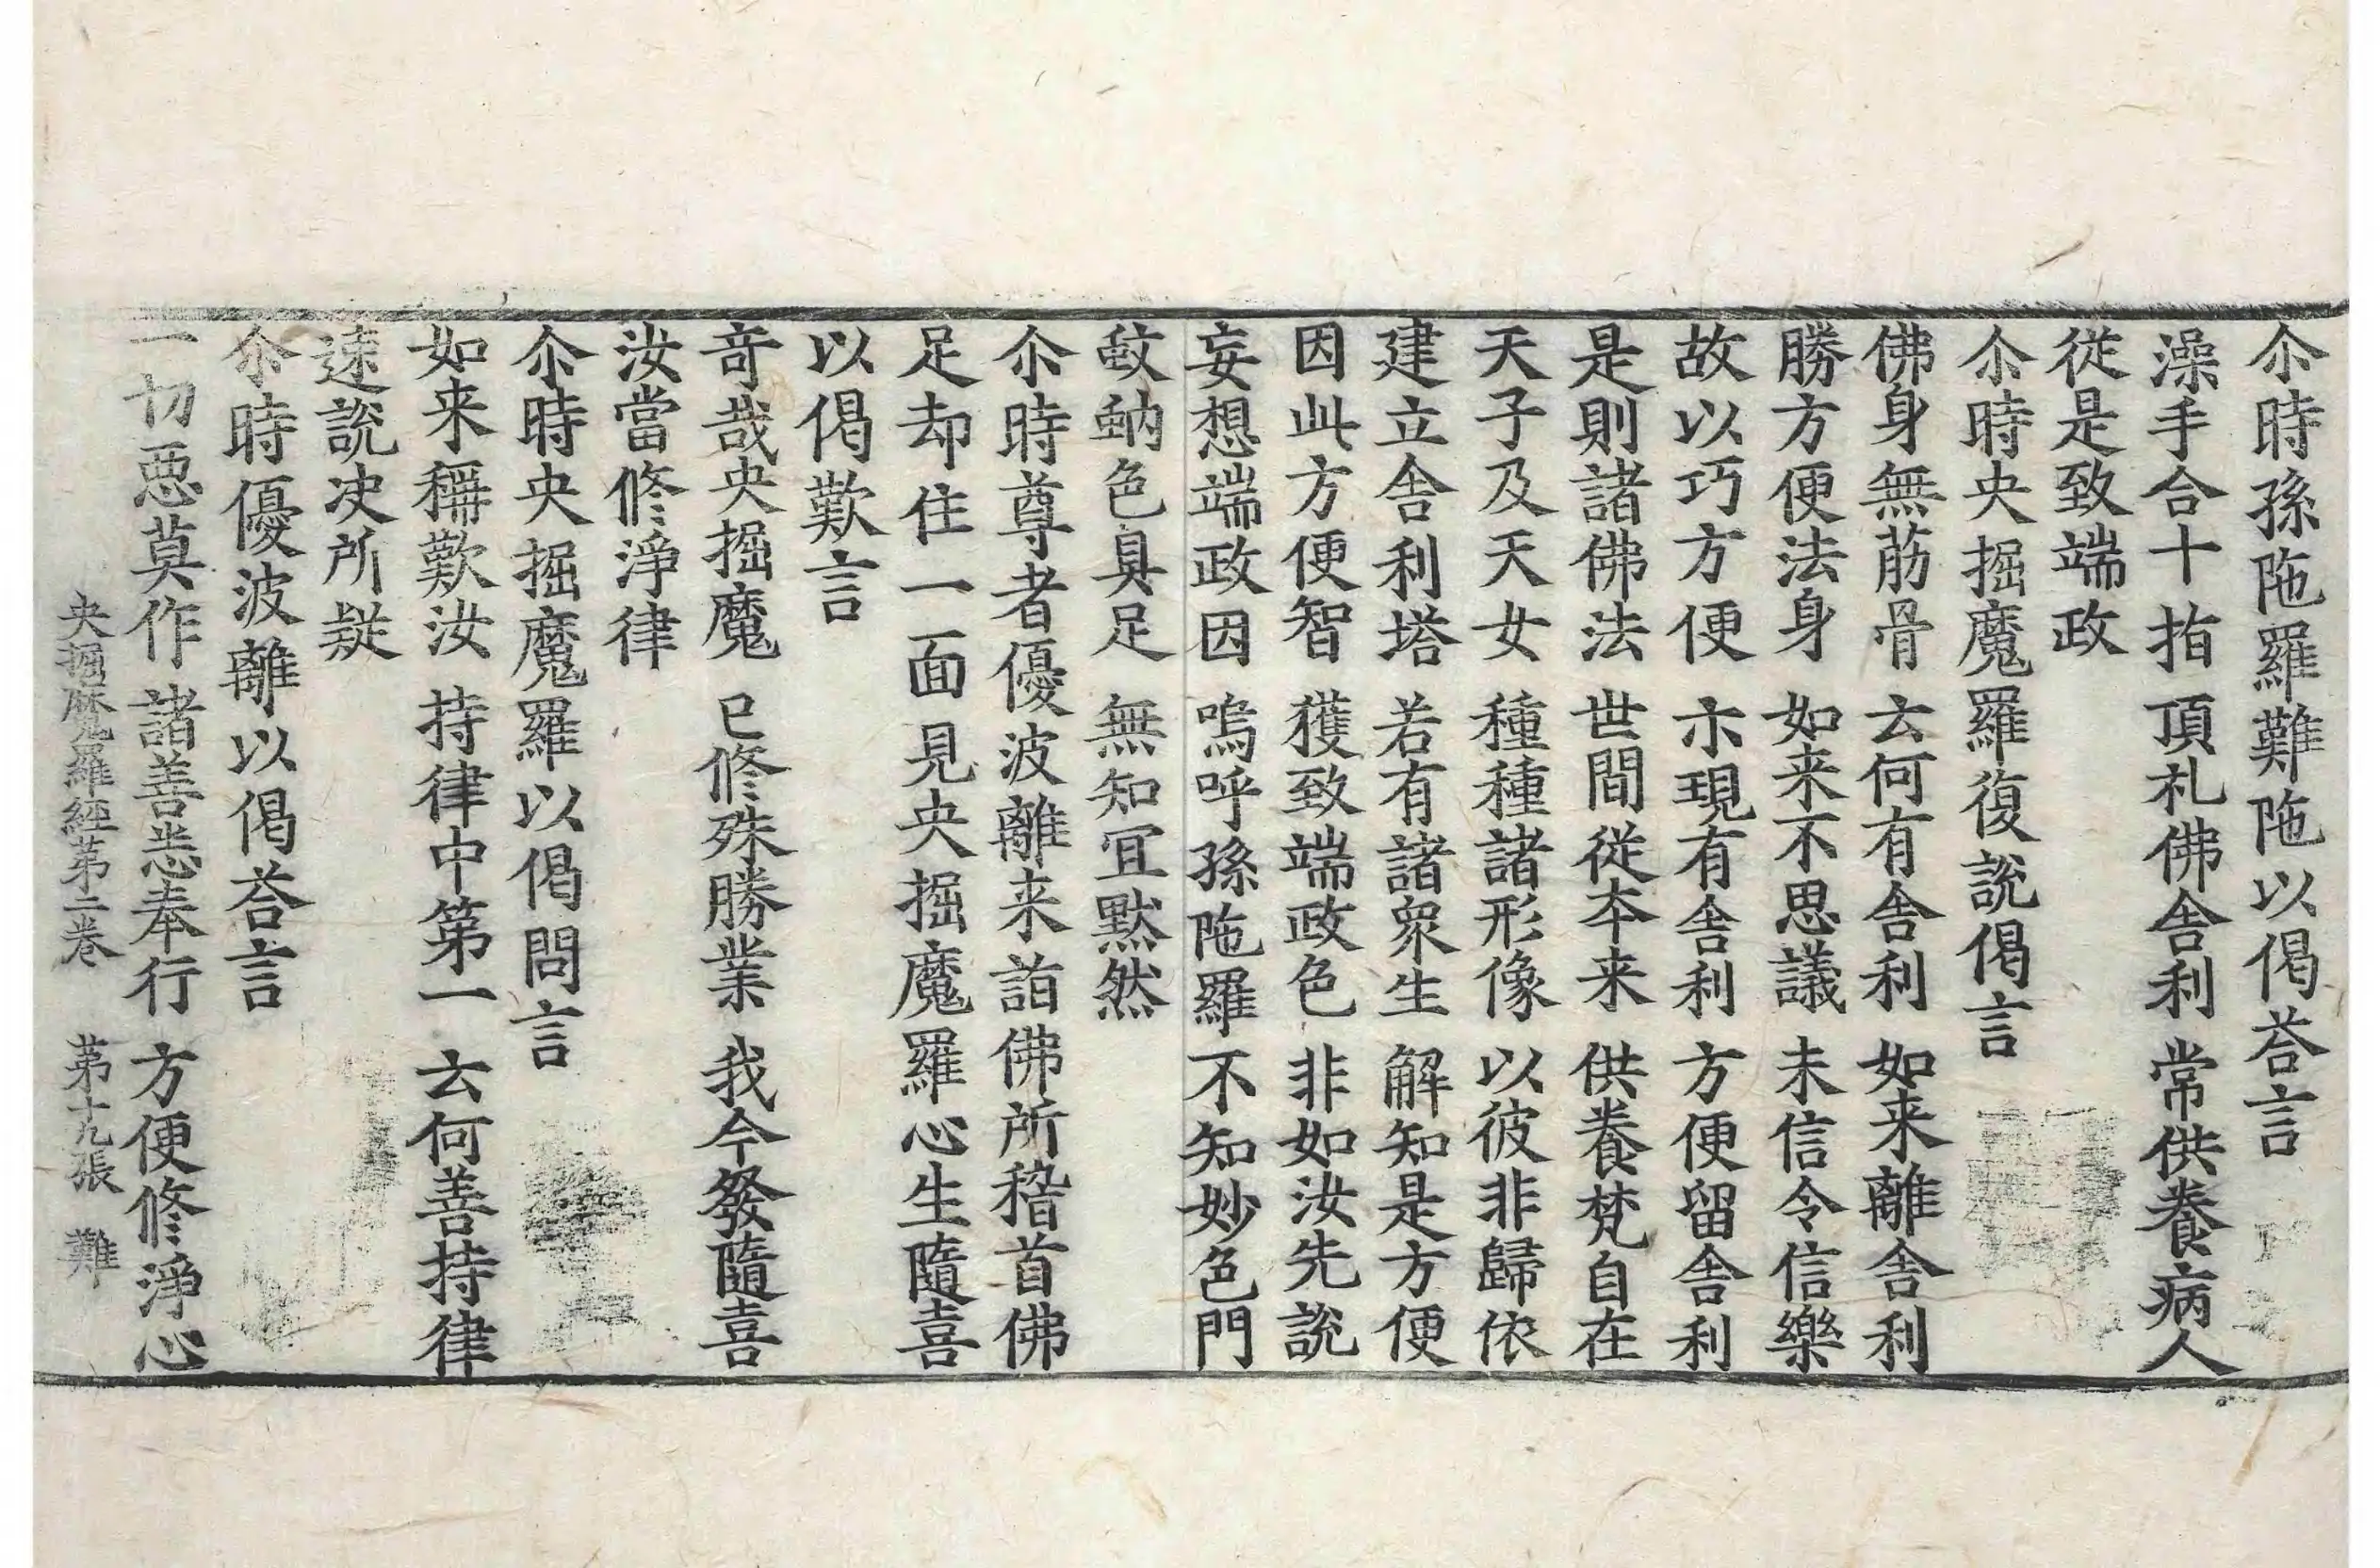 尒時孫陁羅難陁以偈荅言
澡手合十指 頂礼佛舎利 常供養病人
從是致端政
尒時央掘魔羅復說偈言
佛身無筋骨 云何有舎利 如来離舎利
勝方便法身 如来不思議 未信令信樂
故以巧方便 示現有舎利 方便留舎利
是則諸佛法 世間從本来 供養梵自在
天子及天女 種種諸形像 以彼非歸依
建立舎利塔 若有諸衆生 解知是方便
因此方便智 獲致端政色 非如汝先說
妄想端政因 嗚呼孫陁羅 不知妙色門
蚊蚋色具足 無知宜默然
尒時尊者優波離来詣佛所稽首佛
足却住一面見央掘魔羅心生隨喜
以偈歎言
竒哉央掘魔 已修殊勝業 我今發隨喜
汝當修淨律
尒時央掘魔羅以偈問言
如来稱歎汝 持律中第一 云何善持律
速說决所疑
尒時優波離以偈荅言
一切惡莫作 諸善悉奉行 方便修淨心
央掘魔羅經第二卷 第十九張 難